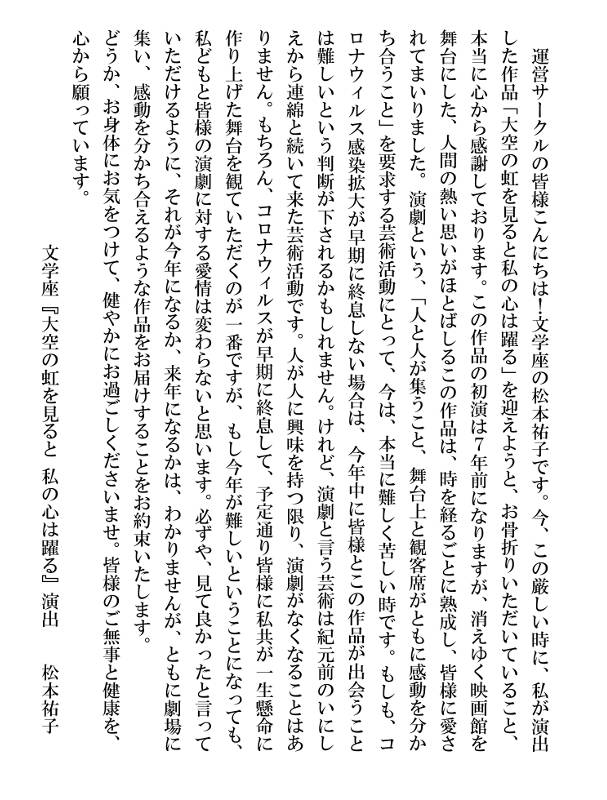 運営サークルの皆様こんにちは！文学座の松本祐子です。今、この厳しい時に、私が演出
した作品「大空の虹を見ると私の心は躍る」を迎えようと、お骨折りいただいていること、
本当に心から感謝しております。この作品の初演は７年前になりますが、消えゆく映画館を
舞台にした、人間の熱い思いがほとばしるこの作品は、時を経るごとに熟成し、皆様に愛さ
れてまいりました。演劇という、「人と人が集うこと、舞台上と観客席がともに感動を分か
ち合うこと」を要求する芸術活動にとって、今は、本当に難しく苦しい時です。もしも、コ
ロナウィルス感染拡大が早期に終息しない場合は、今年中に皆様とこの作品が出会うこと
は難しいという判断が下されるかもしれません。けれど、演劇と言う芸術は紀元前のいにし
えから連綿と続いて来た芸術活動です。人が人に興味を持つ限り、演劇がなくなることはあ
りません。もちろん、コロナウィルスが早期に終息して、予定通り皆様に私共が一生懸命に
作り上げた舞台を観ていただくのが一番ですが、もし今年が難しいということになっても、
私どもと皆様の演劇に対する愛情は変わらないと思います。必ずや、見て良かったと言って
いただけるように、それが今年になるか、来年になるかは、わかりませんが、ともに劇場に
集い、感動を分かち合えるような作品をお届けすることをお約束いたします。
どうか、お身体にお気をつけて、健やかにお過ごしくださいませ。皆様のご無事と健康を、
心から願っています。
文学座『大空の虹を見ると 私の心は躍る』演出　　松本祐子